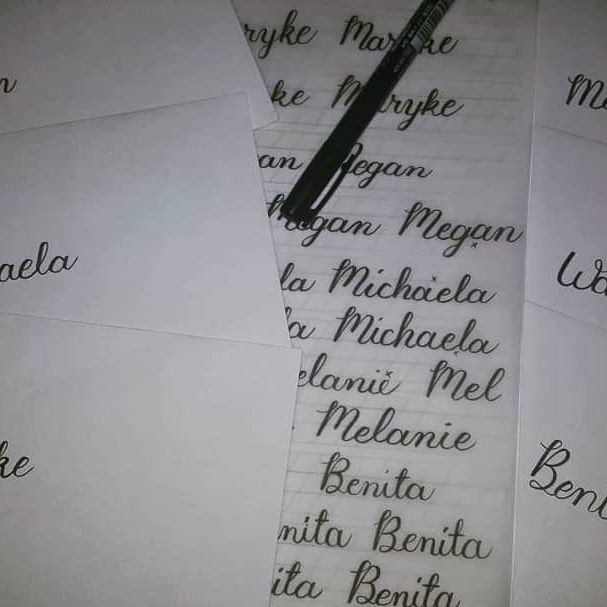 ryke Maryke
ke Maryke
an Megan
Megan Megan
la Michaela
a Michaela
elanie Mel
Melanie
Benita
nita Benita
ita Benita
n
aela
ke
Ma
Wa
Beni